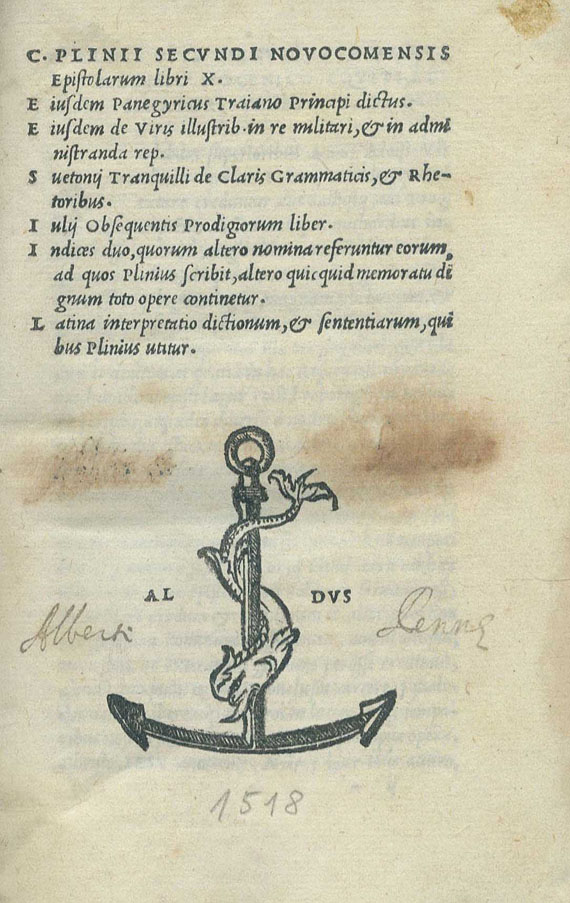 C. PLINII SECVNDI NOVOCOMENSIS
Epistolarum libri X.
E iusdem Panegyricus Traiano Principi dictus.
E iusdem de Viris illustrib. in re militari, & in admi
nistranda rep.
S uetonij Tranquilli de Claris Grammaticis, & Rhe-
toribus.
I ulij Obsequentis Prodigiorum liber.
I ndices duo, quorum altero nomina referuntur eorum,
ad quos Plinius scribit, altero quicquid memoratu di
gnum toto opere continetur.
L atina interpretatio dictionum, & sententiarum, qui
bus Plinius utitur.
AL DVS
Albert
1518